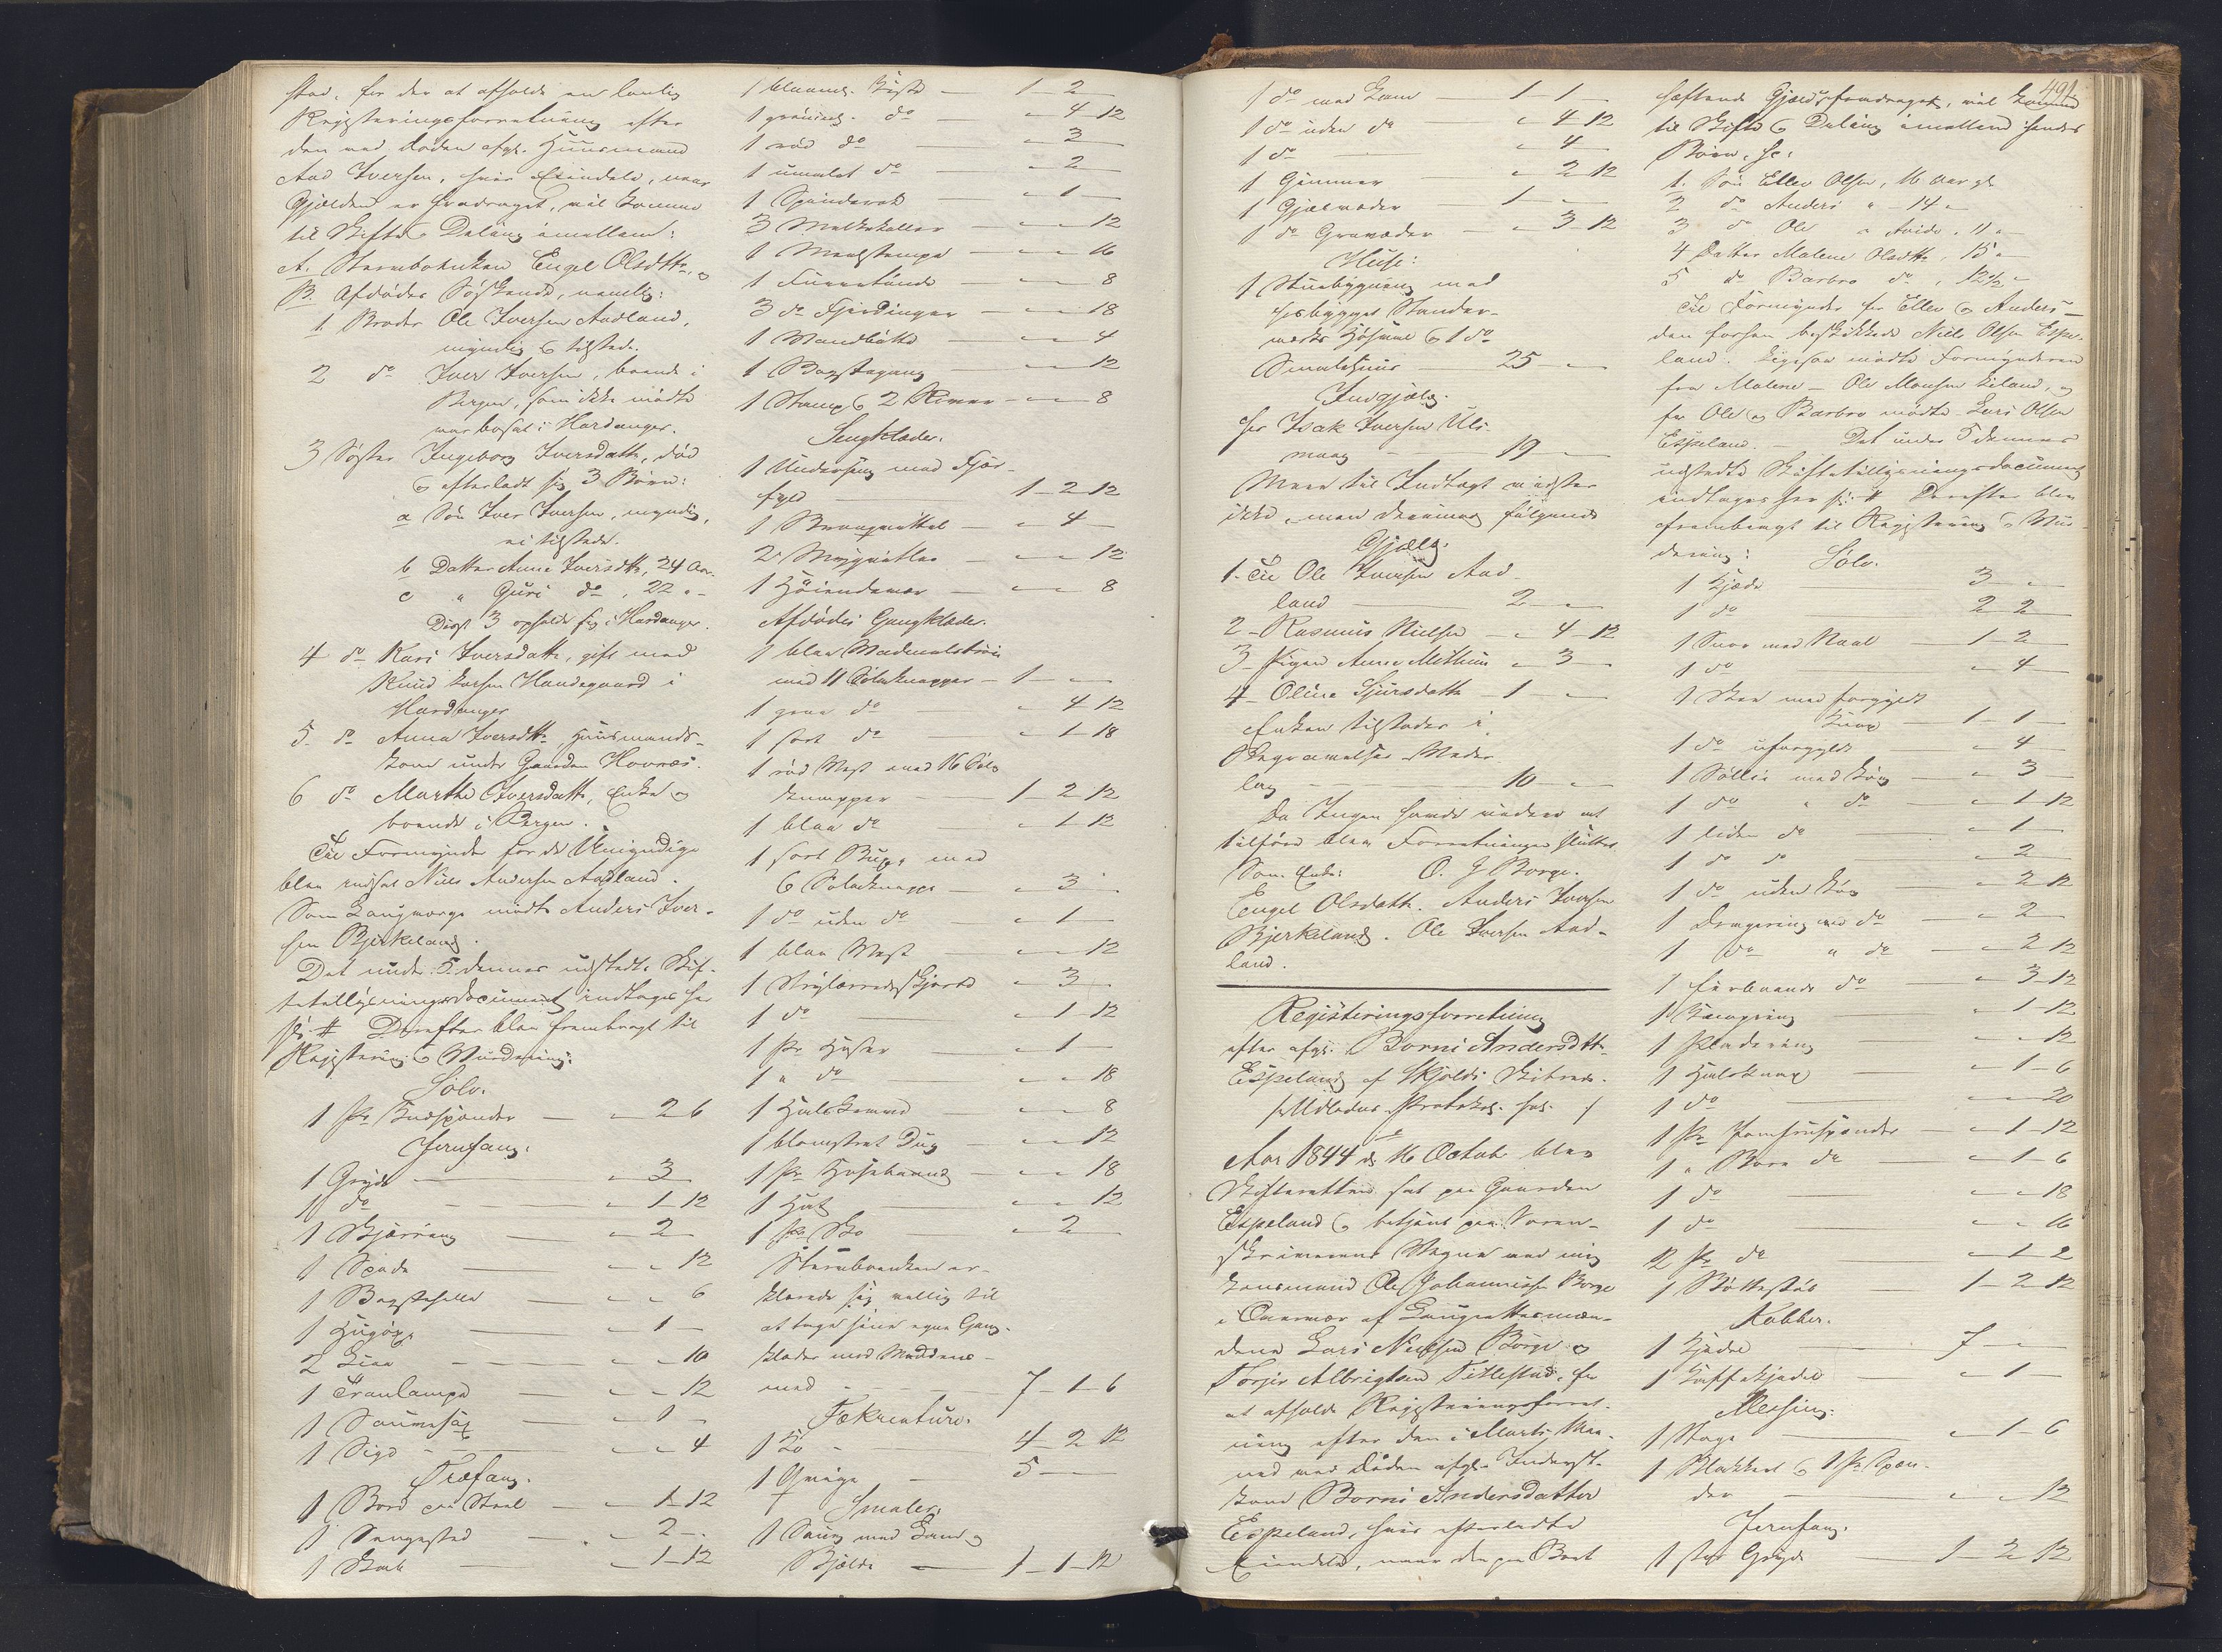 stad, for der at afholde en lovlig
Registreringsforretning efter
den ved Døden afg. Huusmand
Aad Iversen, hvis Eiendele, naar
Gjælden er fradraget, vil komme
til Skifte & Deling imellem:
A. Stervboenken Engel Olsdttr, og
B. Afdødes Søskende, nemlig:
1 Broder Ole Iversen Aadland,
myndig & tilstede.
2 do Iver Iversen, boende i
Bergen, som ikke mødte
var bosat i Hardanger.
3 Søster Ingeborg Iversdattr, død
& efterladt sig 3 Børn:
a Søn Iver Iversen, myndig,
ei tilstede.
b Datter Anne Iversdttr, 24 Aar.
c " Guri do, 22 " -
Disse 3 opholde sig i Hardanger.
4 do Kari Iversdattr, gift med
Knud Larsen Handegaard i
Hardanger
5. do Anna Iversdttr, Huusmands-
kone under Gaarden Hovnæs.
6 do Marthe Iversdattr, Enke og
boende i Bergen.
Til Formynder for de Umyndige
blev indsat Niels Andersen Aadland.
Som Laugværge mødte Anders Iver-
sen Bjerkeland.
Det under 5 dennes udstedte Skif-
tetillysningsdocument indtages her
sit # Derefter blev frembragt til
Registrering & Vurdering:
Sølv.
1 Pr Knæspænder — " 2 6
Jernfang.
1 Gryde — " 3 —
1 do — " 1 12
1 Skjæreng — " 2 —
1 Spade — " " 12
1 Bagstehelle — " " 6
1 Hugøxe — " 1 —
2 Liaa — " " 10
1 Tranlampe — " " 12
1 Sauesax — " 1 —
1 Sigd — " " 4
Træfang.
1 Bord og Stoel — " 1 12
1 Sengested — " 2 —
1 Skab — " 1 12
1 blaamt. Kiste — 1 2 —
1 grønmt. do — " 4 12
1 rød do — " 3 —
1 umalet do — " 2 —
1 Spinderok — " 1 —
3 Melkekoller — " " 12
1 Meelstampe — " " 16
1 Furretønde — " " 8
3 do Fjerdinger — " " 18
1 Vandbøtte — " " 4
1 Bagstagang — " " 12
1 Stamp & 2 River — " " 8
Sengklæder.
1 Underseng med Fjær-
fyld — 1 2 12
1 Brangrøttel — " 4 —
2 — " " 12
1 Høiendevær — " " 8
Afdødes Gangklæder.
1 blaa Vadmelstrøie
med 11 Sølvknapper — 1 — "
1 graa do — " 4 12
1 sort do — " 1 18
1 rød Vest med 16 Sølv
knapper — 1 2 12
1 blaa do — " 1 12
1 sort Buxe med
6 Sølvknapper — " 3 —
1 do uden do — " 1 —
1 blaa Vest — " " 12
1 Strylærredsskjorte — " 3 —
1 do — " 1 12
1 Pr Hoser — " 1 —
1 " do — " " 18
1 Halskemmed — " " 8
1 blomstret Dug — " " 12
1 Pr Hosebaand — " " 18
1 Hat — " " 12
1 Pr Sko — " 2 —
Stervboenken er-
klærede sig villig til
at tage sine egne Gang-
klæder med
med — 7 1 6
Fækreaturer.
1 Ko — 4 2 12
1 Qvige — 5 —
Smaler.
1 Sau med Lam og
Bjælde — 1 1 12
491
1 do med Lam — 1 1 —
1 do uden do — " 4 12
1 do — " 4 —
1 Gimmer — " 2 12
1 Gjælvæder — 1 — "
1 do Gravæder — " 3 12
Huse:
1 Stuebygning med
hosbygget Stander-
værks Høskuur & 1 do
Smalehuus — 25 — "
Indgjæld.
hos Isak Iversen Uls-
maag — 19 — "
Mere til Indtægt vidstes
ikke, men derimod følgende
Gjæld.
1. Til Ole Iversen Aad-
land — 2 — "
2 - Rasmus Nielsen — " 4 12
3 - Pigen Anne — " 3 —
4 - Oline Sjursdattr — 1 — "
Enken tilstaaes i
Begravelses Veder-
lag — 10 — "
Da Ingen havde videre at
tilføre blev Forretningen sluttet
Som Enke: O. J Borge.
Engel Olsdattr. Anders Iversen
Bjerkeland. Ole Iversen Aad-
land.
Registreringsforretning
efter afg. Borni Andersdttr
Espeland af Skjolds Skibrede.
/ Udlodns Protokol fol. /
Aar 1844 d 16 October blev
Skifteretten sat paa Gaarden
Espeland & betjent paa Soren-
skriverens Vegne ved mig
Lensmand Ole Johannessen Borge
i Overvær af Laugrettesmæn-
dene Lars Nielsen Borge og
Torger Albrigtsen Titlestad, for
at afholde Registreringsforret-
ning efter den i Marts Maa-
ned ved Døden afg. Inderst-
kone Borni Andersdatter
Espeland, hvis efterladte
Eiendele, naar den paa Boet
hæftende Gjæld er fradraget, vil komme
til Skifte & Deling imellem hendes
Børn, sc:
1. Søn Ellev Olsen, 16 Aar gl.
2 do Anders " - 14 "
3 do Ole " , 11 "
4 Datter Malene Olsdttr, 15 "
5 do Barbro do, 12½ "
Til Formynder for Ellev & Anders
den forhen beskikkede Niels Olsen Espe-
land. Ligesaa mødte Formynderen
for Malene - Ole Monsen Liland, og
for Ole og Barbro mødte Lars Olsen
Espeland. — Det under 5 dennes
udstedte Skiftetillysningsdocument
indtages her sit # Derefter blev
frembragt til Registrering & Vur-
dering: Sølv.
1 Kjæde — 3 — "
1 do — 2 2 —
1 Snor med Naal — 1 2 —
1 do — " 4 —
1 Skee med forgyldt
Knap — 1 1 —
1 do uforgyldt — " 4 —
1 Søllie med Løv — " 3 —
1 do " do — " 1 12
1 liden do — " 1 —
1 do do — " 2 —
1 do uden Løv — " 2 12
1 Dragering med do — " 2 —
1 do " do — " 2 12
1 do — " 3 12
1 — " 1 12
1 Pladering — " " 12
1 Halsknap — " 1 6
1 do — " " 20
1 Pr — " 1 12
1 " Børn do — " 1 6
1 do — " " 18
1 do — " " 16
2 Pr do — " 1 2
1 Bøttestøb — 1 2 12
Kobber.
1 Kjedel — 7 — "
1 Kaffekjedel — " 1 —
Messing.
1 Stage — " 1 6
1 Blækhuus & 1 Pr Spæn-
der — " " 12
Jernfang.
1 stor Gryde — 1 2 12